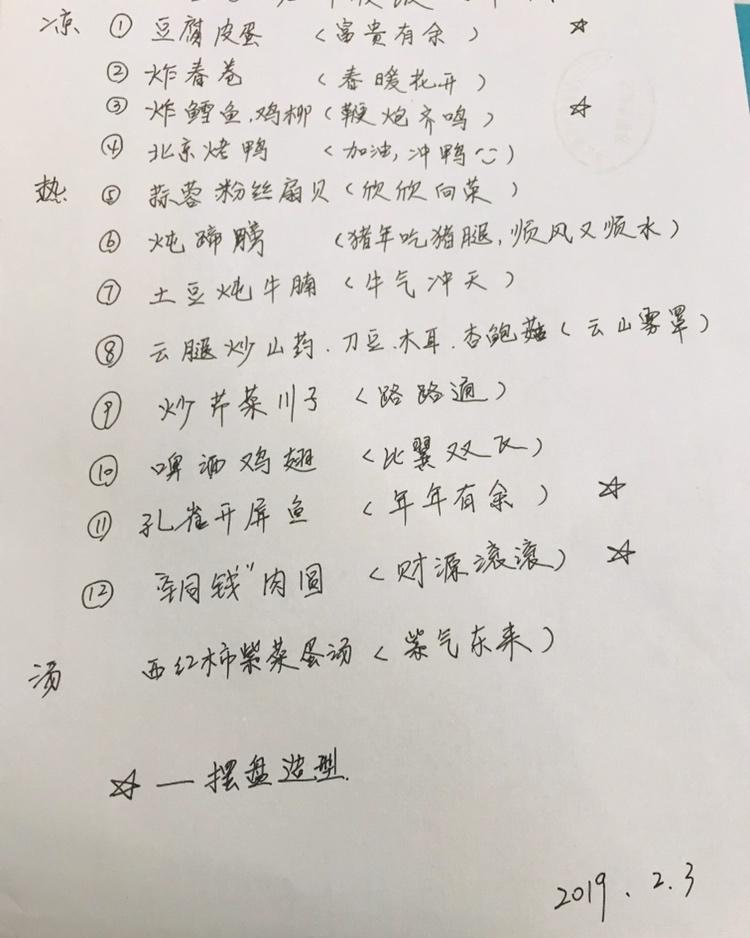 凉 ① 豆腐皮蛋 (富贵有余) ☆
② 炸春卷 (春暖花开)
③ 炸鳕鱼,鸡柳 (鞭炮齐鸣) ☆
④ 北京烤鸭 (加油,冲鸭)
热 ⑤ 蒜蓉粉丝扇贝 (欣欣向荣)
⑥ 炖蹄膀 (猪年吃猪腿,顺风又顺水)
⑦ 土豆炖牛腩 (牛气冲天)
⑧ 云腿炒山药.刀豆.木耳.杏鲍菇 (云山雾罩)
⑨ 炒芹菜川子 (路路通)
⑩ 啤酒鸡翅 (比翼双飞)
⑪ 孔雀开屏鱼 (年年有余) ☆
⑫ 钱"肉圆 (财源滚滚) ☆
汤 西红柿紫菜蛋汤 (紫气东来)
☆ — 摆盘造型.
2019.2.3